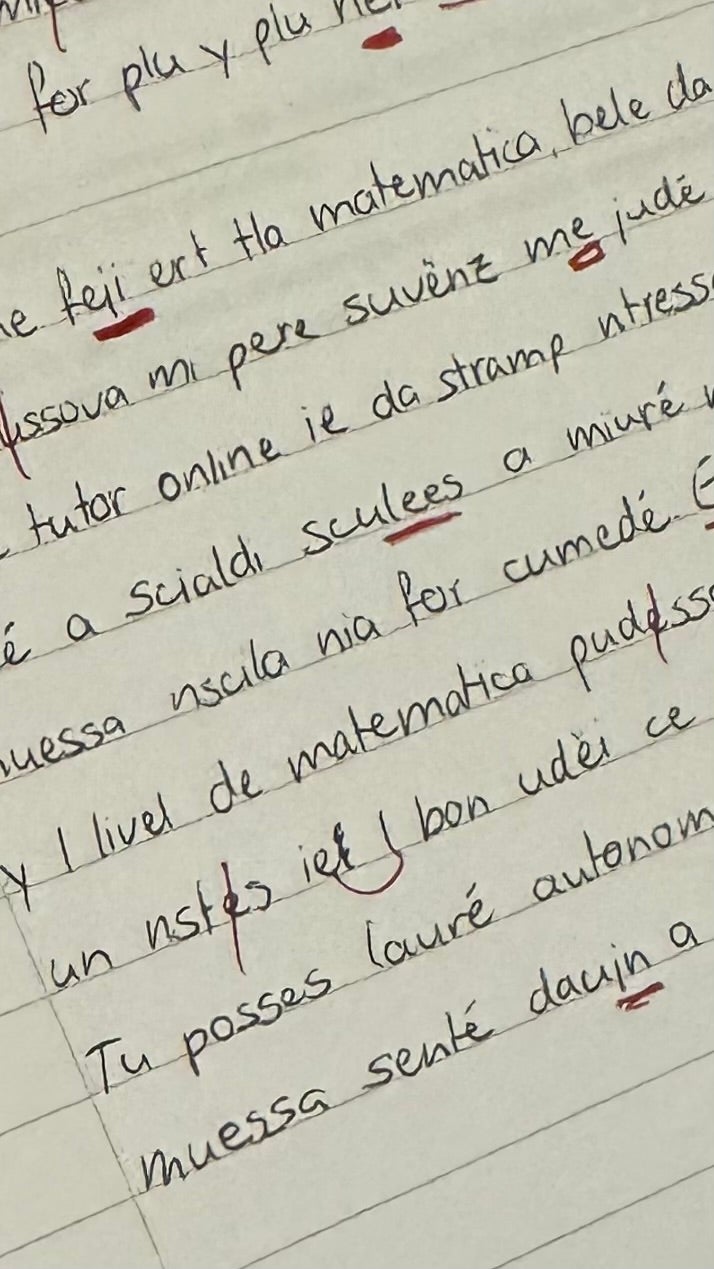 for plu y plu
feji ert tla matematica, bele da
ussova mi pere suvënz me judé
tutor online ie da stramp ntress
é a scialdi sculees a miuré
muessa nscila nia for cumedé.
y l livel de matematica pudëss
un nstës iel l bon udëi ce
Tu posses lauré autonom
muessa senté daujin a